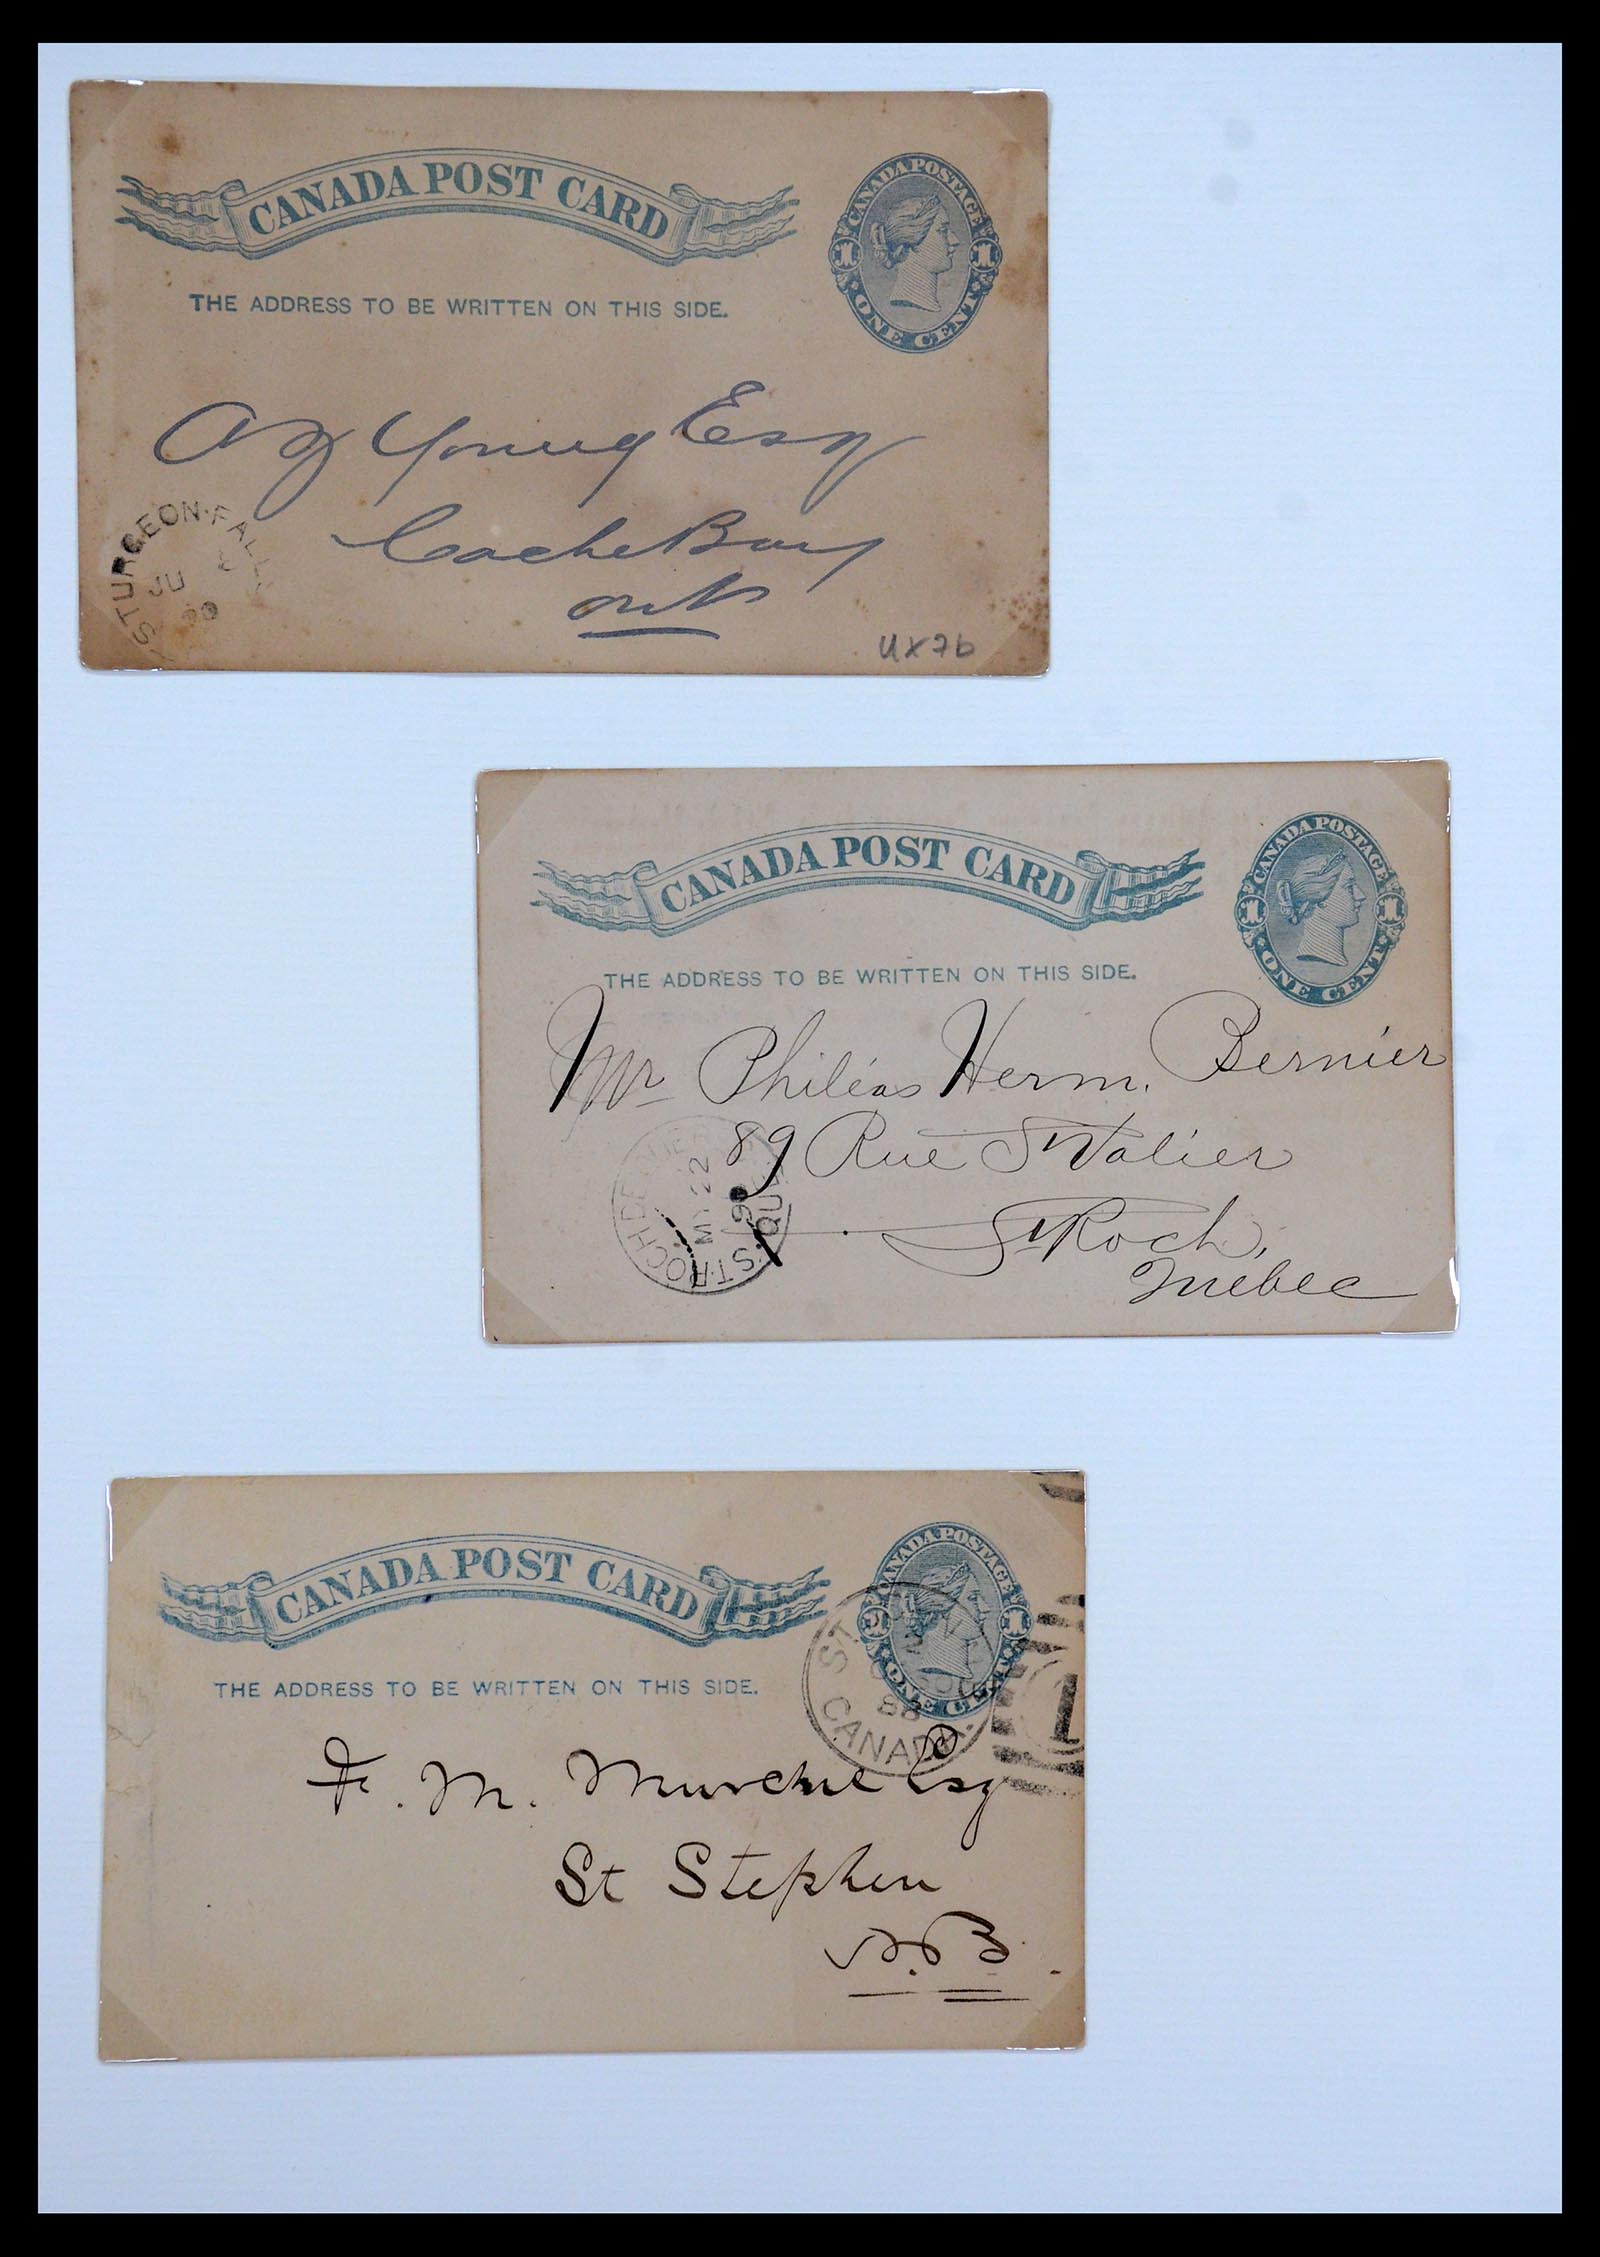 CANADA POST CARD
CANADA POSTAGE
1 1
ONE CENT
THE ADDRESS TO BE WRITTEN ON THIS SIDE.
Young Esq
Cache Bay
Ont
STURGEON·FALLS
JU
90
UX7b
CANADA POST CARD
CANADA POSTAGE
1 1
ONE CENT
THE ADDRESS TO BE WRITTEN ON THIS SIDE.
Mr Philéas Herm. Bernier
89 Rue St Valier
St Roch,
Quebec
ST·ROCH DE
MY 22
90
QUE
CANADA POST CARD
CANADA POSTAGE
1 1
ONE CENT
THE ADDRESS TO BE WRITTEN ON THIS SIDE.
ST.
88
CANADA
1
F. M. Murchie Esq
St Stephen
N.B.